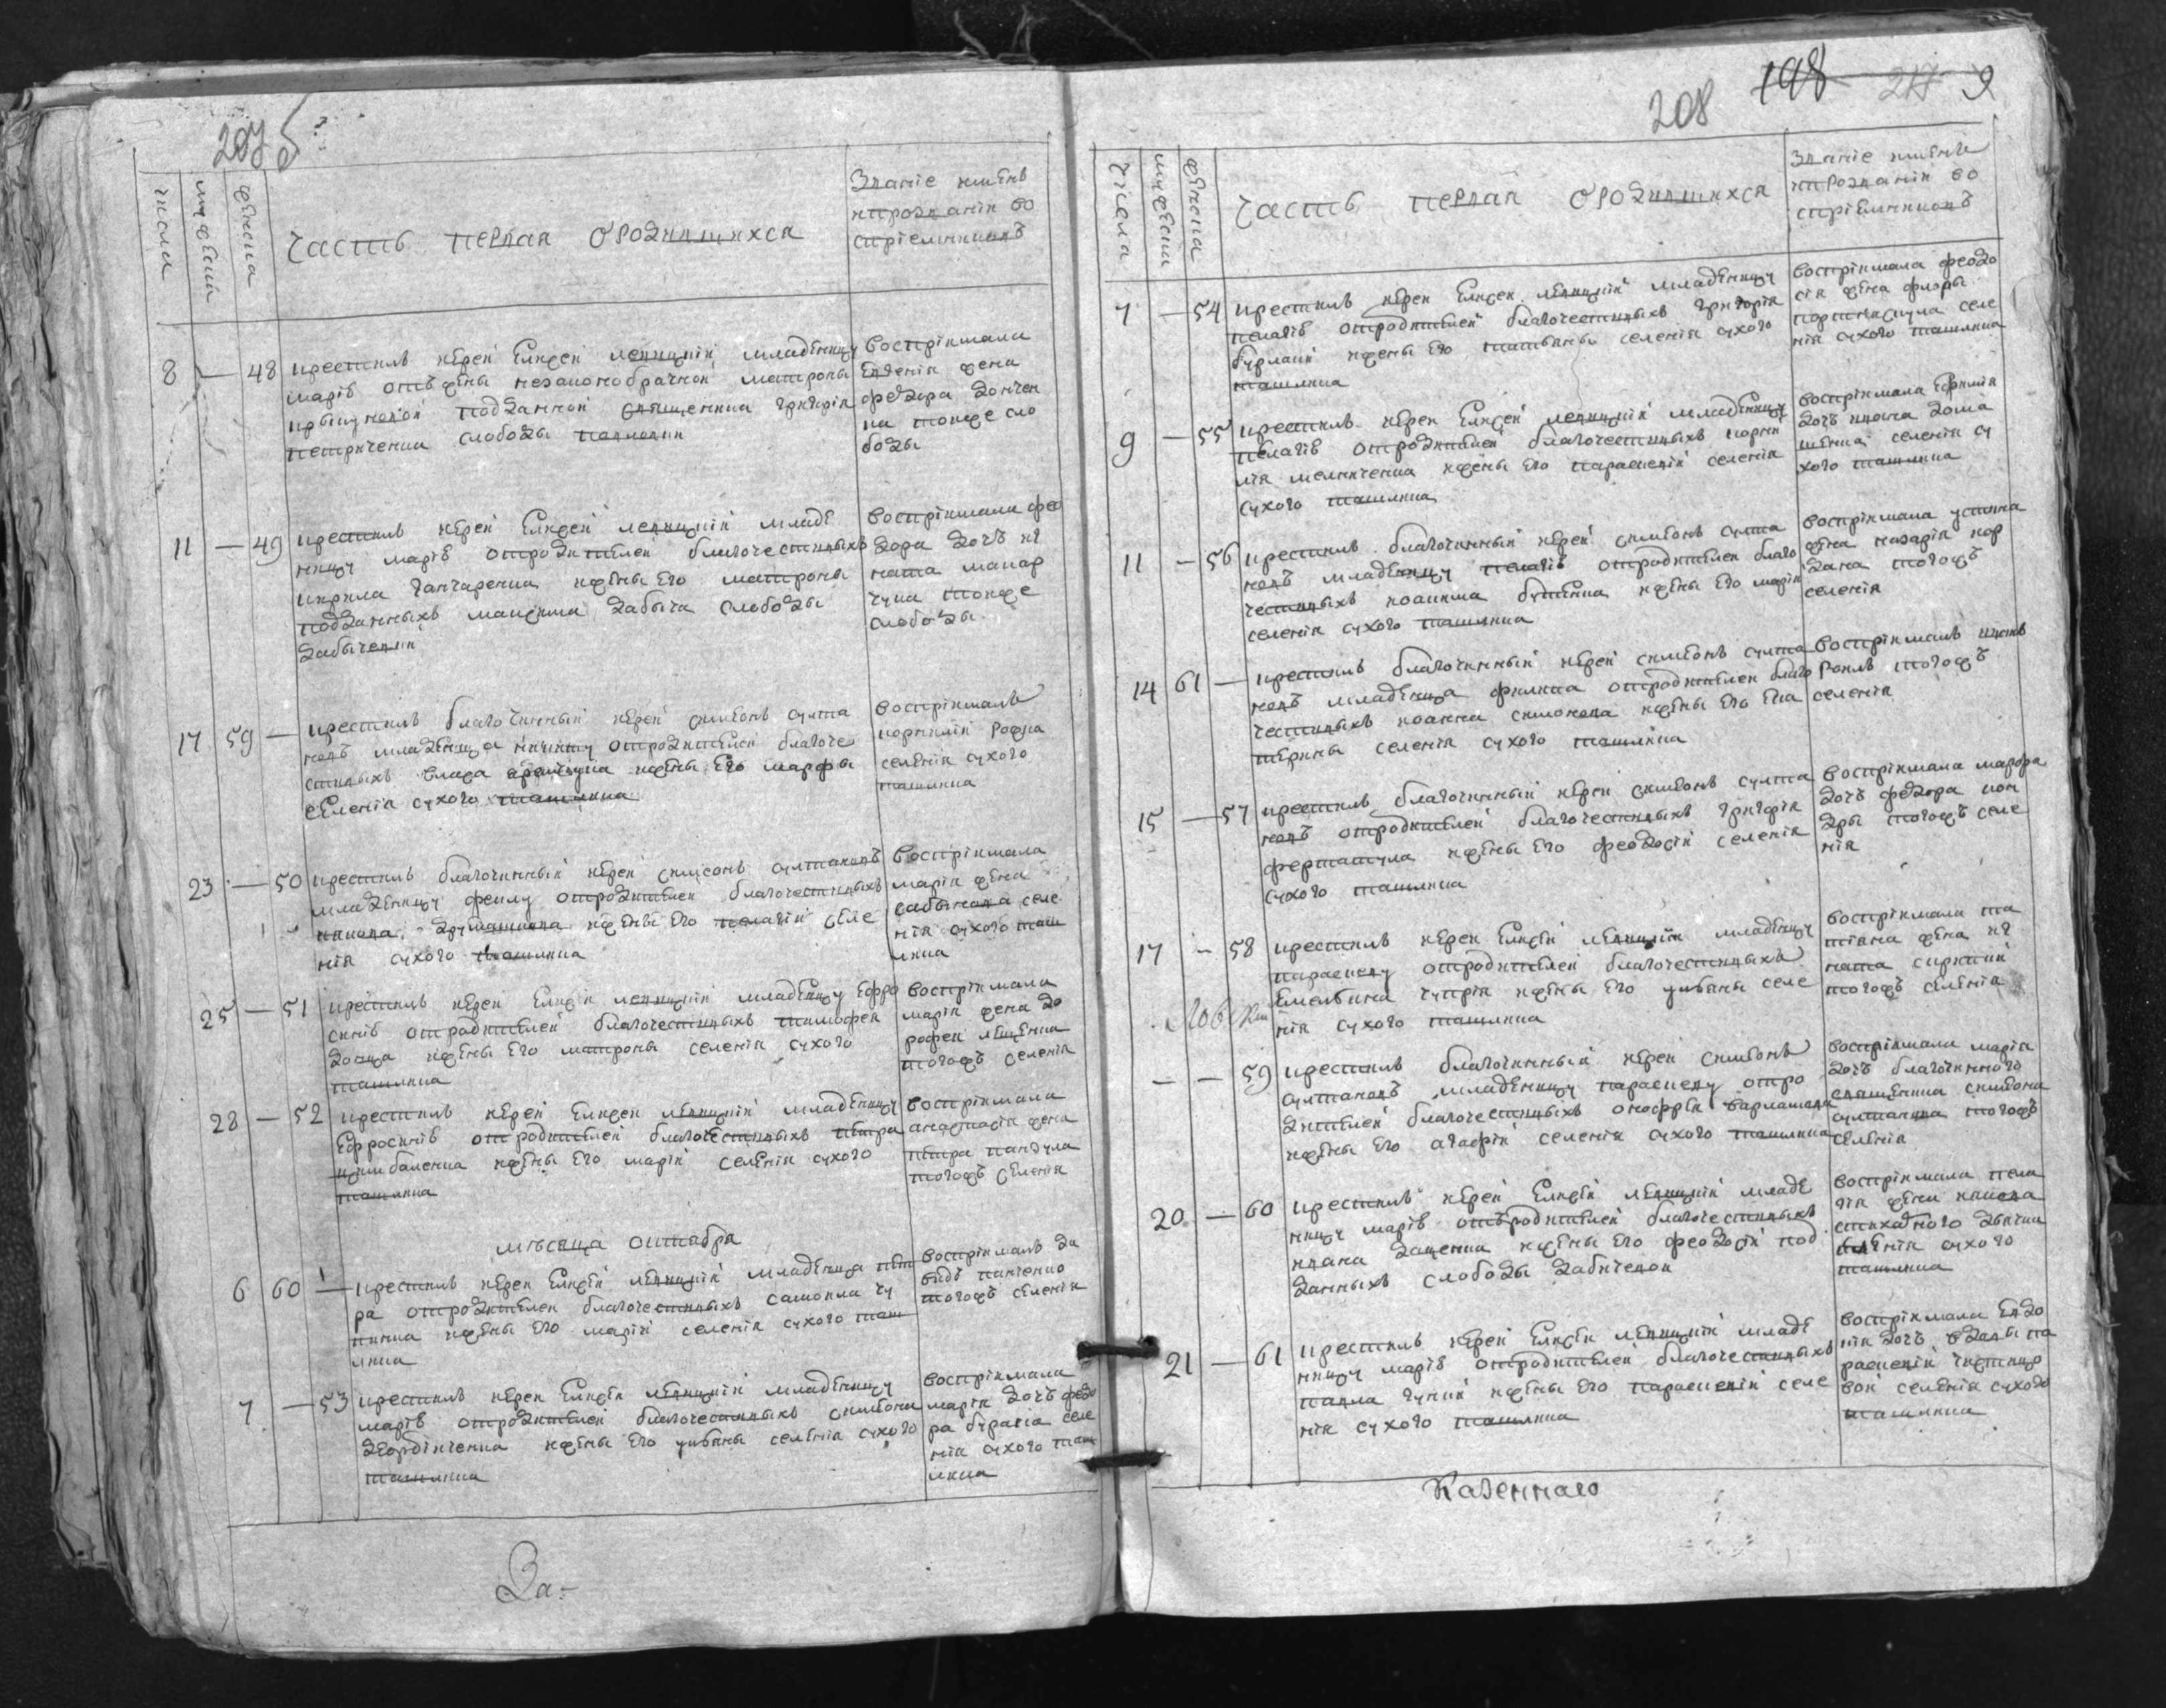 207
числа
мужеска
женска
часть первая о родившихся
Званіе именъ
и прозваніи во
спріемниковъ
8 — 48 крестилъ іерей Елисей Левицкій младеницу
марію отъ жены незаконобрачной матроны
подданной священника григорія
петриченка слободы
воспріимала
Евгенія жена
федора дончен
ка тоже сло
боды
11 — 49 крестилъ іерей Елисей Левицкій младе
ницу марію от родителей благочестивыхъ
кирила ганчаренка и жены его матроны
подданныхъ максима забыча слободы
воспріимала фео
дора дочь иг
ната макар
чука тоиже
слободы
17 59 — крестилъ благочинный іерей симеонъ султа
новъ младенца никиту от родителей благоче
стивыхъ власа и жены его марфы
селенія сухого ташлика
воспріималъ
корнилій
селенія сухого
ташлика
23 — 50 крестилъ благочинный іерей симеонъ султановъ
младеницу феклу от родителей благочестивыхъ
и жены его пелагіи селе
нія сухого ташлика
воспріимала
марія жена
селе
нія сухого таш
лика
25 — 51 крестилъ іерей Елисей Левицкій младеницу Ефро
синію от родителей благочестивыхъ тимофея
донца и жены его матроны селенія сухого
ташлика
воспріимала
марія жена до
рофея
тогожъ селенія
28 — 52 крестилъ іерей Елисей Левицкій младеницу
Ефросинію от родителей благочестивыхъ петра
цимбаленка и жены его маріи селенія сухого
ташлика
воспріимала
анастасія жена
петра пандула
тогожъ селенія
мѣсяца октабра
6 60 — крестилъ іерей Елисей Левицкій младенца пет
ра от родителей благочестивыхъ самоила
и жены его маріи селенія сухого таш
лика
воспріималъ да
видъ панченко
тогожъ селенія
7 — 53 крестилъ іерей Елисей Левицкій младеницу
марію от родителей благочестивыхъ симеона
и жены его уліяны селенія сухого
ташлика
воспріимала
марія дочь федо
ра бурлака селе
нія сухого таш
лика
За-
208 198 217 9
числа
мужеска
женска
часть первая о родившихся
Званіе имени
и прозваніи во
спріемниковъ
7 — 54 крестилъ іерей Елисей Левицкій младеницу
пелагію от родителей благочестивыхъ григорія
бурлаки и жены его татьяны селенія сухого
ташлика
воспріимала феодо
сія жена флора
селе
нія сухого ташлика
9 — 55 крестилъ іерей Елисей Левицкій младеницу
пелагію от родителей благочестивыхъ корни
лія мелниченка и жены его параскевіи селенія
сухого ташлика
воспріимала Ефимія
дочь ивана дома
шенка селенія су
хого ташлика
11 — 56 крестилъ благочинный іерей симеонъ султа
новъ младеницу пелагію от родителей благо
честивыхъ иоакима и жены его маріи
селенія сухого ташлика
воспріимала устина
жена назарія кор
дана тогожъ
селенія
14 61 — крестилъ благочинный іерей симеонъ султа
новъ младенца филипа от родителей благо
честивыхъ иоанна симонова и жены его Ека
терины селенія сухого ташлика
воспріималъ иванъ
тогожъ
селенія
15 — 57 крестилъ благочинный іерей симеонъ султа
новъ от родителей благочестивыхъ григорія
фертатула и жены его феодосіи селенія
сухого ташлика
воспріимала марфа
дочь федора кон
дры тогожъ селе
нія
17 — 58 крестилъ іерей Елисей Левицкій младеницу
параскеву от родителей благочестивыхъ
Емельяна чупрія и жены его уліяны селе
нія сухого ташлика
воспріимала та
тіяна жена иг
ната
тогожъ селенія
— — 59 крестилъ благочинный іерей симеонъ
султановъ младеницу параскеву от ро
дителей благочестивыхъ онофрія варлашана
и жены его агафіи селенія сухого ташлика
воспріимала марія
дочь благочинного
священика симеона
султанова тогожъ
селенія
20 — 60 крестилъ іерей Елисей Левицкій младе
ницу марію отъ родителей благочестивыхъ
ивана заценка и жены его феодосіи под
данныхъ слободы
воспріимала пела
гія жена якова
стихарного дьячка
селенія сухого
ташлика
21 — 61 крестилъ іерей Елисей Левицкій младе
ницу марію от родителей благочестивыхъ
павла и жены его параскевіи селе
нія сухого ташлика
воспріимала Евдо
кія дочь вдовы па
раскевіи
вой селенія сухого
ташлика
Казеннаго